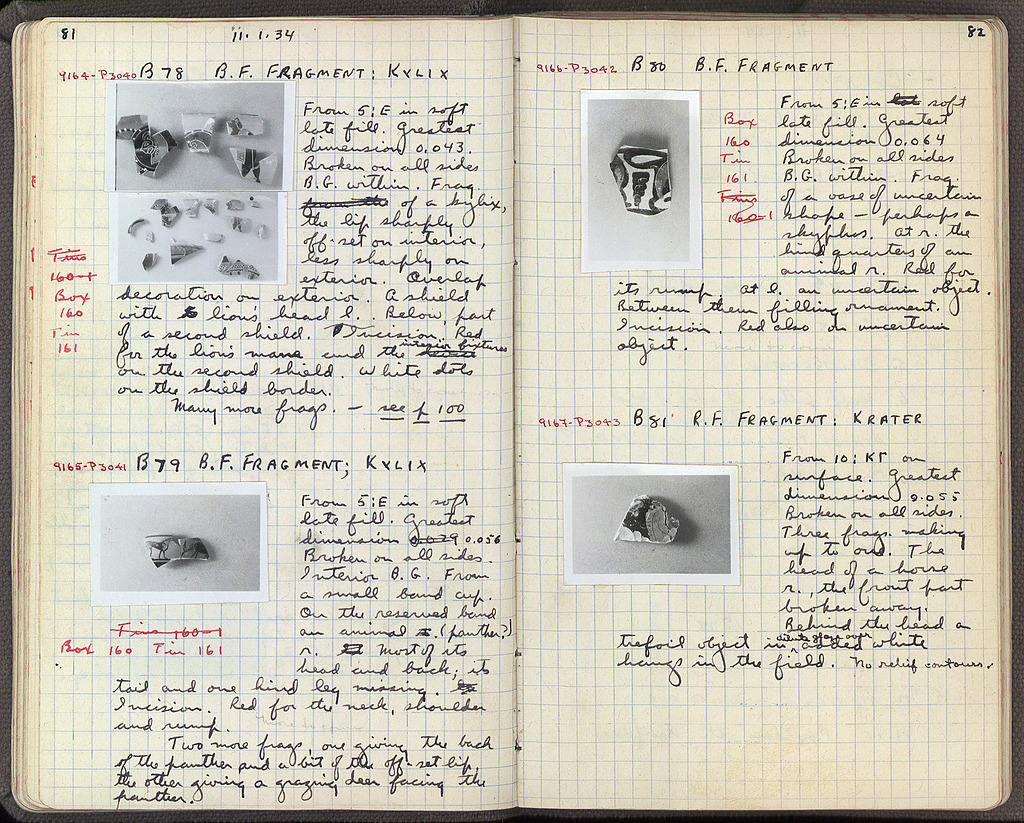 81
11.1.34
9164-P3040 B78 B.F. FRAGMENT: KYLIX
From 5:E in soft
late fill. Greatest
dimension 0.043.
Broken on all sides
B.G. within. Frag
of a kylix,
the lip sharply
off-set on interior,
less sharply on
exterior. Overlap
decoration on exterior. A shield
with lion's head l. Below, part
of a second shield. Incision. Red
for the lion's mane and the interior fixtures
on the second shield. White dots
on the shield border.
Many more frags. – see p 100
Tins
160-1
Box
160
Tin
161
9165-P3041 B79 B.F. FRAGMENT; KYLIX
From 5:E in soft
late fill. Greatest
dimension 0.029 0.056
Broken on all sides.
Interior B.G. From
a small band cup.
On the reserved band
an animal r. (panther?)
r. Most of its
head and back; its
tail and one hind leg missing.
Incision. Red for the neck, shoulder
and rump.
Two more frags, one giving the back
of the panther and a bit of the off-set lip,
the other giving a grazing deer facing the
panther.
Tins 160-1
Box 160 Tin 161
82
9166-P3042 B80 B.F. FRAGMENT
From 5:E in late soft
late fill. Greatest
dimension 0.064
Broken on all sides
B.G. within. Frag.
of a vase of uncertain
shape – perhaps a
skyphos. At r. the
hind quarters of an
animal r. Red for
its rump. At l. an uncertain object.
Between them filling ornament.
Incision. Red also on uncertain
object.
Box
160
Tin
161
Tins
160-1
9167-P3043 B81 R.F. FRAGMENT: KRATER
From 10:KΓ on
surface. Greatest
dimension 0.055
Broken on all sides.
Three frags. making
up to one. The
head of a horse
r., the front part
broken away.
Behind the head a
trefoil object in added white
hangs in the field. No relief contours.